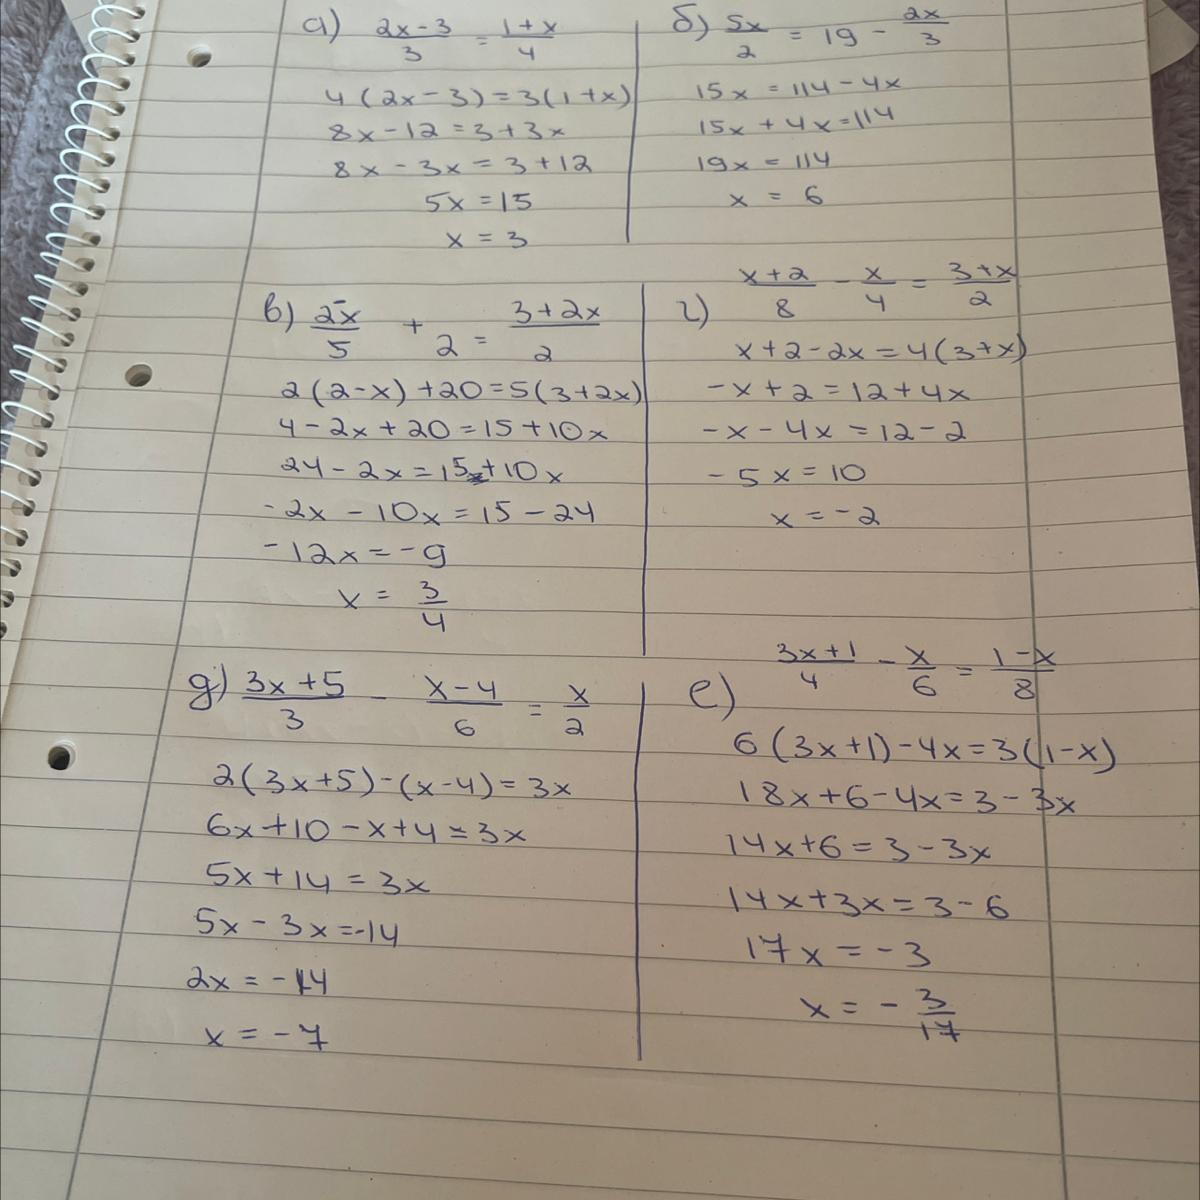 а) (2x-3)/3 = (1+x)/4
4(2x-3)=3(1+x)
8x-12=3+3x
8x-3x=3+12
5x=15
x=3
б) 5x/2 = 19 - 2x/3
15x=114-4x
15x+4x=114
19x=114
x = 6
в) (2-x)/5 + 2 = (3+2x)/2
2(2-x)+20=5(3+2x)
4-2x+20=15+10x
24-2x=15+10x
-2x-10x=15-24
-12x=-9
x = 3/4
г) (x+2)/8 - x/4 = (3+x)/2
x+2-2x=4(3+x)
-x+2=12+4x
-x-4x=12-2
-5x=10
x=-2
д) (3x+5)/3 - (x-4)/6 = x/2
2(3x+5)-(x-4)=3x
6x+10-x+4=3x
5x+14=3x
5x-3x=-14
2x=-14
x=-7
е) (3x+1)/4 - x/6 = (1-x)/8
6(3x+1)-4x=3(1-x)
18x+6-4x=3-3x
14x+6=3-3x
14x+3x=3-6
17x=-3
x=-3/17